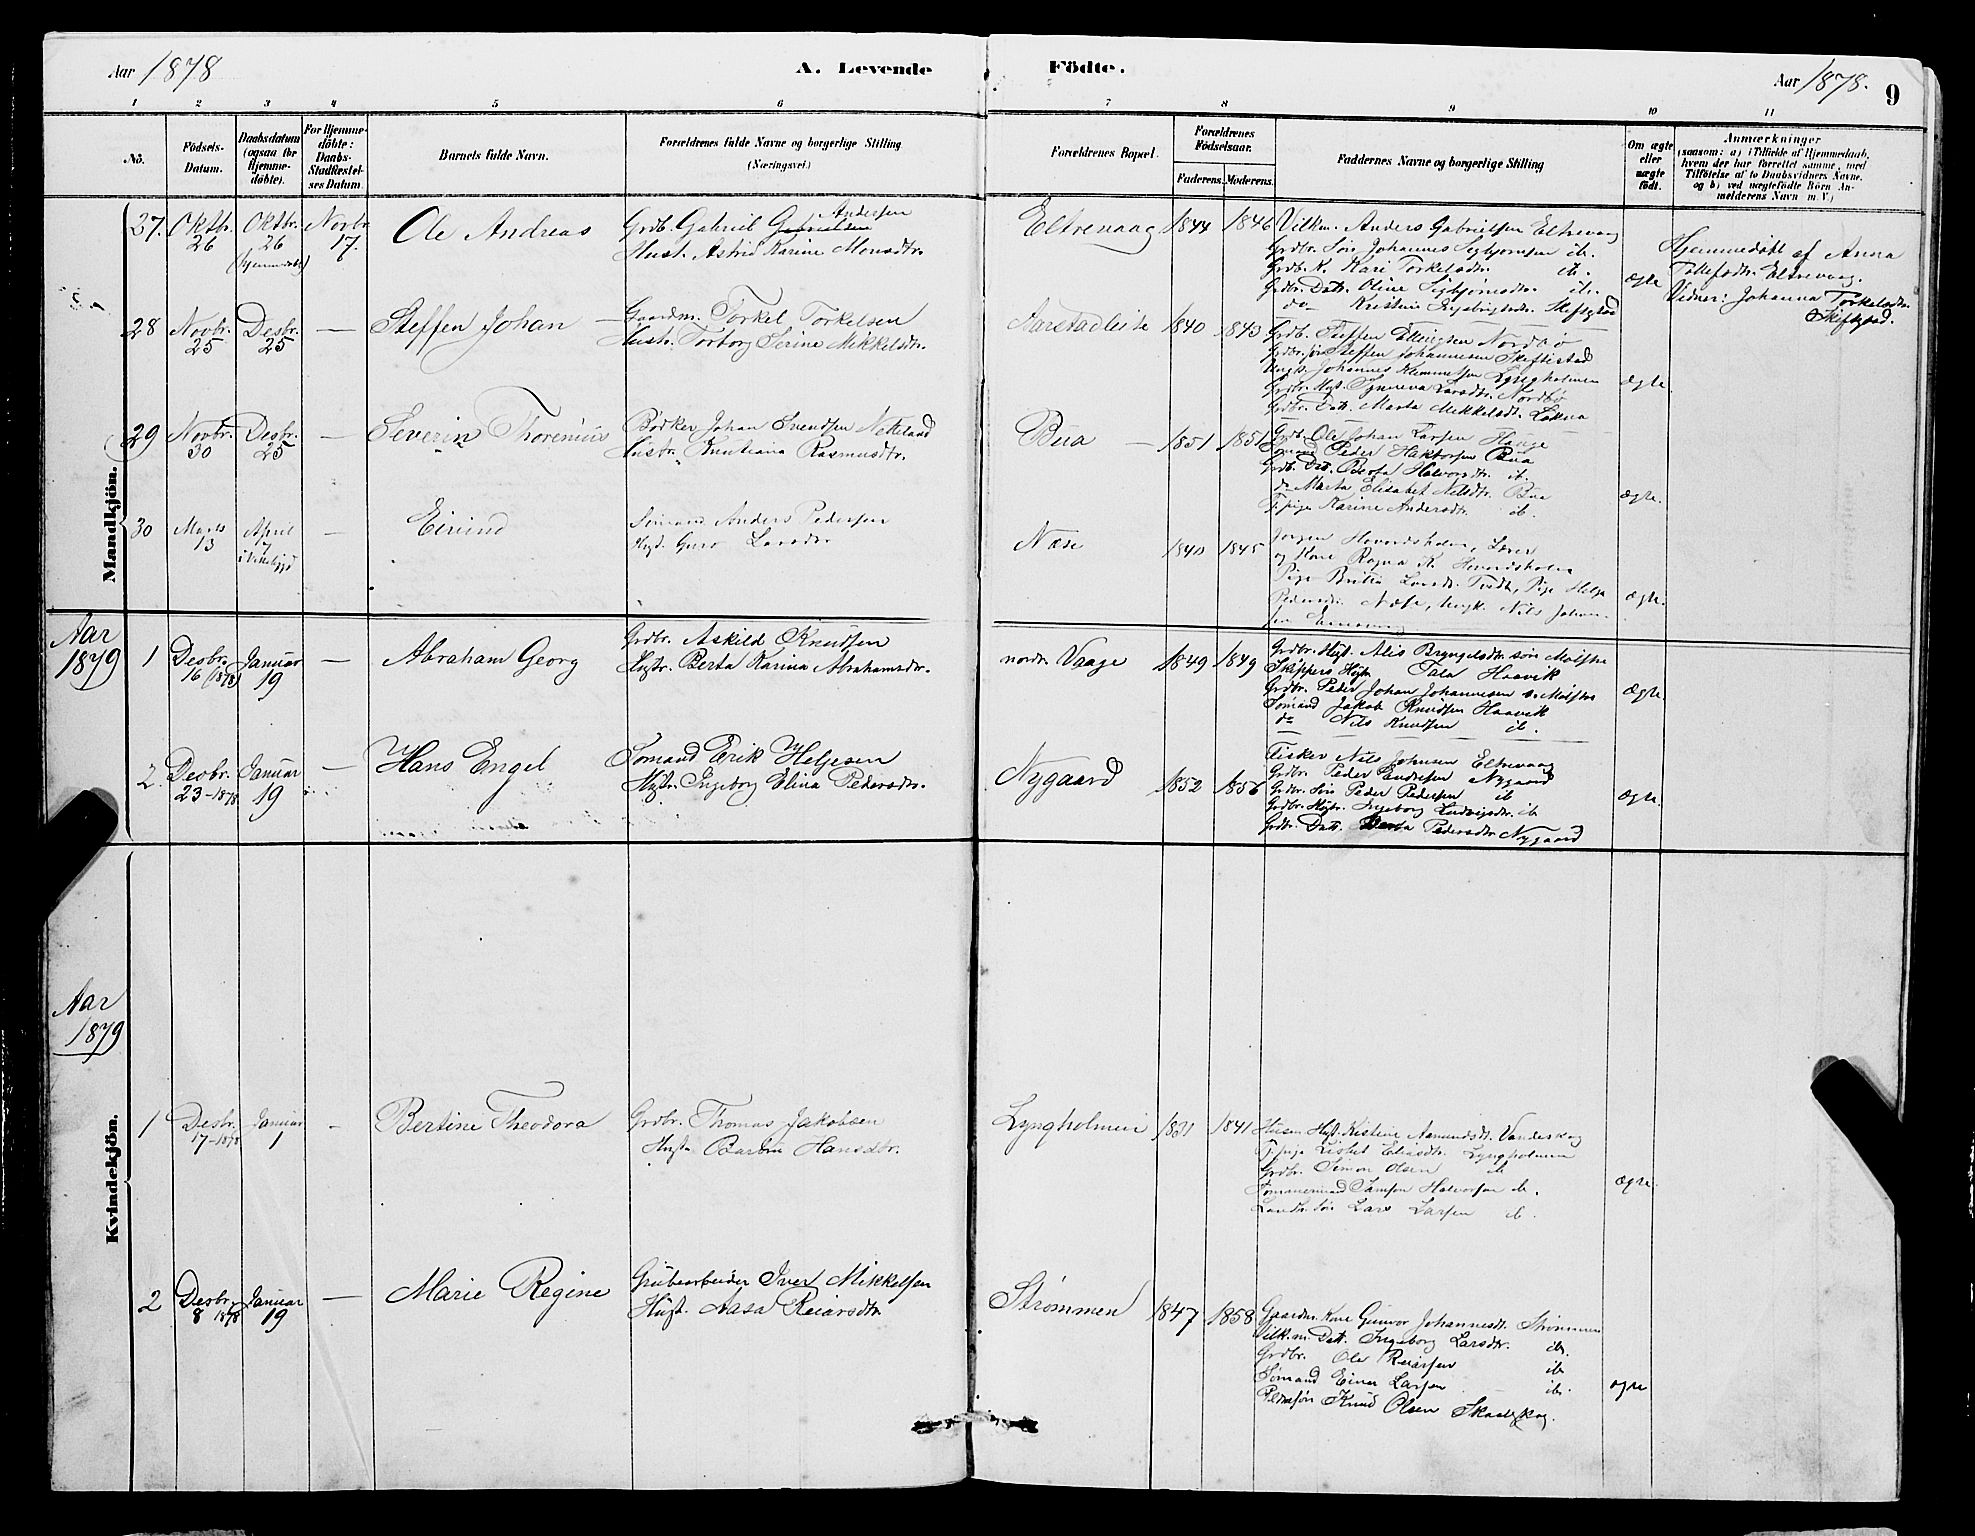 Aar 1878
A. Levende
Födte.
Aar 1878.
9
1 2 3 4 5 6 7 8 9 10 11
No.
Födsels-Datum.
Daabsdatum (ogsaa for Hjemme-döbte).
For Hjemme-döbte: Daabs-Stadfæstel-ses Datum.
Barnets fulde Navn.
Forældrenes fulde Navne og borgerlige Stilling (Næringsvei)
Forældrenes Bopæl.
Forældrenes Födselsaar.
Faderens. Moderens.
Faddernes Navne og borgerlige Stilling
Om ægte eller uægte födt.
Anmærkninger
(saasom: a) i Tilfælde af Hjemmedaab,
hvem der har forrettet samme, med
Tilföielse af to Daabsvidners Navne,
og b) ved uægtefödte Börn An-
melderens Navn m. V.)
Mandkjön.
27. Oktbr. 26
Oktbr. 26 (hjemmedøbt)
Novbr. 17.
Ole Andreas
Grdb. Gabriel Gabrielsen Andersen
Hust. Astrid Karine Monsdtr.
Eltrevaag 1844 1846
Vilkm. Anders Gabrielsen Eltrevaag
Grdbr. Søn Johannes Sigbjørnsen ib.
Grdb. K. Kari Torkelsdtr. ib.
Grdbr. Datr. Oline Sigbjørnsdtr. ib.
do Kristine Ingebrigtsdtr. Skiftestad
ægte
Hjemmedøbt af Anna
Tollefsdtr. Eltrevaag.
Vidner: Johanna Torkelsdtr.
Skiftestad.
28 Novbr. 25
Desbr. 25
—
Steffen Johan
Gaardm. Torkel Torkelsen
Hustr. Torborg Serine Mikkelsdtr.
Aarstadleite 1840 1843
Grdb. Steffen Ellingsen Nordbø
Grdbr. søn Steffen Johannesen Skiftestad
Ungk. Johannes Klemmetsen Lyngholmen
Grdbr. Hust. Synneva Larsdtr. Nordbø
Grdbr. Datr. Marta Mikkelsdtr. Løkna
ægte.
29 Novbr. 30
Desbr. 25
—
Severin Thorenius
Bødker Johan Svendsen Nekeland
Hustr. Kristiana Rasmusdtr.
Bua 1851 1851
Grdb. Ole Johan Larsen Hauge
Sømand Peder Haktorsen Bua
Grdb. Dtr. Berta Halvorsdtr. ib.
do Marta Elisabet Nilsdtr. Bua
Tj.pige Karine Andersdtr. ib.
ægte.
30 Marts 13
April 7
—
Eivind
Sømand Anders Pedersen
Hust. Guro Larsdtr
Næse 1840 1845
Jørgen Hovordsholm, Lærer
og Kone Ragna K. Hovordsholm
Pige Britta Larsdtr. Tindt, Pige Helga
Pedersdtr. Næse, Ungk. Nils Johan-
ægte.
Aar 1879
1 Desbr. 16 (1878)
Januar 19
—
Abraham Georg
Grdbr. Askild Knudsen
Hustr. Berta Karina Abrahamsdtr.
nordre Vaage 1849 1849
Grdbr. Hust. Alis Bryngelsdtr. søn Mølstre
Skippers Hustr. Tala Haavik
Grdbr. Peder Johan Johannesen s. Mølstre
Sømand Jakob Knudsen Haavik
do Nils Knudsen ib.
Ægte.
2. Desbr. 23-1878
Januar 19
—
Hans Engel
Sømand Erik Helgesen
Hustr. Ingeborg Elina Pedersdtr.
Nygaard 1852 1856
Fisker Nils Johnsen Eltrevaag
Grdbr. Peder Endresen Nygaard
Grdbr. Søn Peder Pedersen ib
Grdbr. Hustr. Ingeborg Ludvigsdtr. ib
Grdbr. Datt. Berta Pedersdtr. Nygaard
Ægte.
Aar 1879
Kvindekjön.
1 Desbr. 17-1878
Januar 1
-
Bertine Theodora
Grdbr. Thomas Jakobsen
Hustr. Barbru Hansdtr.
Lyngholmen 1831 1841
Husm. Hust. Kristine Aamundsdt. Vandaskog
Tj.pige Lisbet Eliasdtr. Lyngholmen
Grdbr. Simon Olsen ib
Samson Halvorsen ib.
Lars Larsen ib.
ægte.
2 Desbr. 8 1878
Januar 19
—
Marie Regine
Grubearbeider Iver Mikkelsen
Hust. Aasa Reiarsdtr.
Strømmen 1847 1858
Gaardm. Kone Gunvor Johannesdt. Strømmen
Vilk.m. Datt. Ingeborg Larsdtr. ib.
Grdbr. Ole Reiarsen ib
Sømand Einar Larsen ib.
Knud Olsen Skaaleskog.
ægte